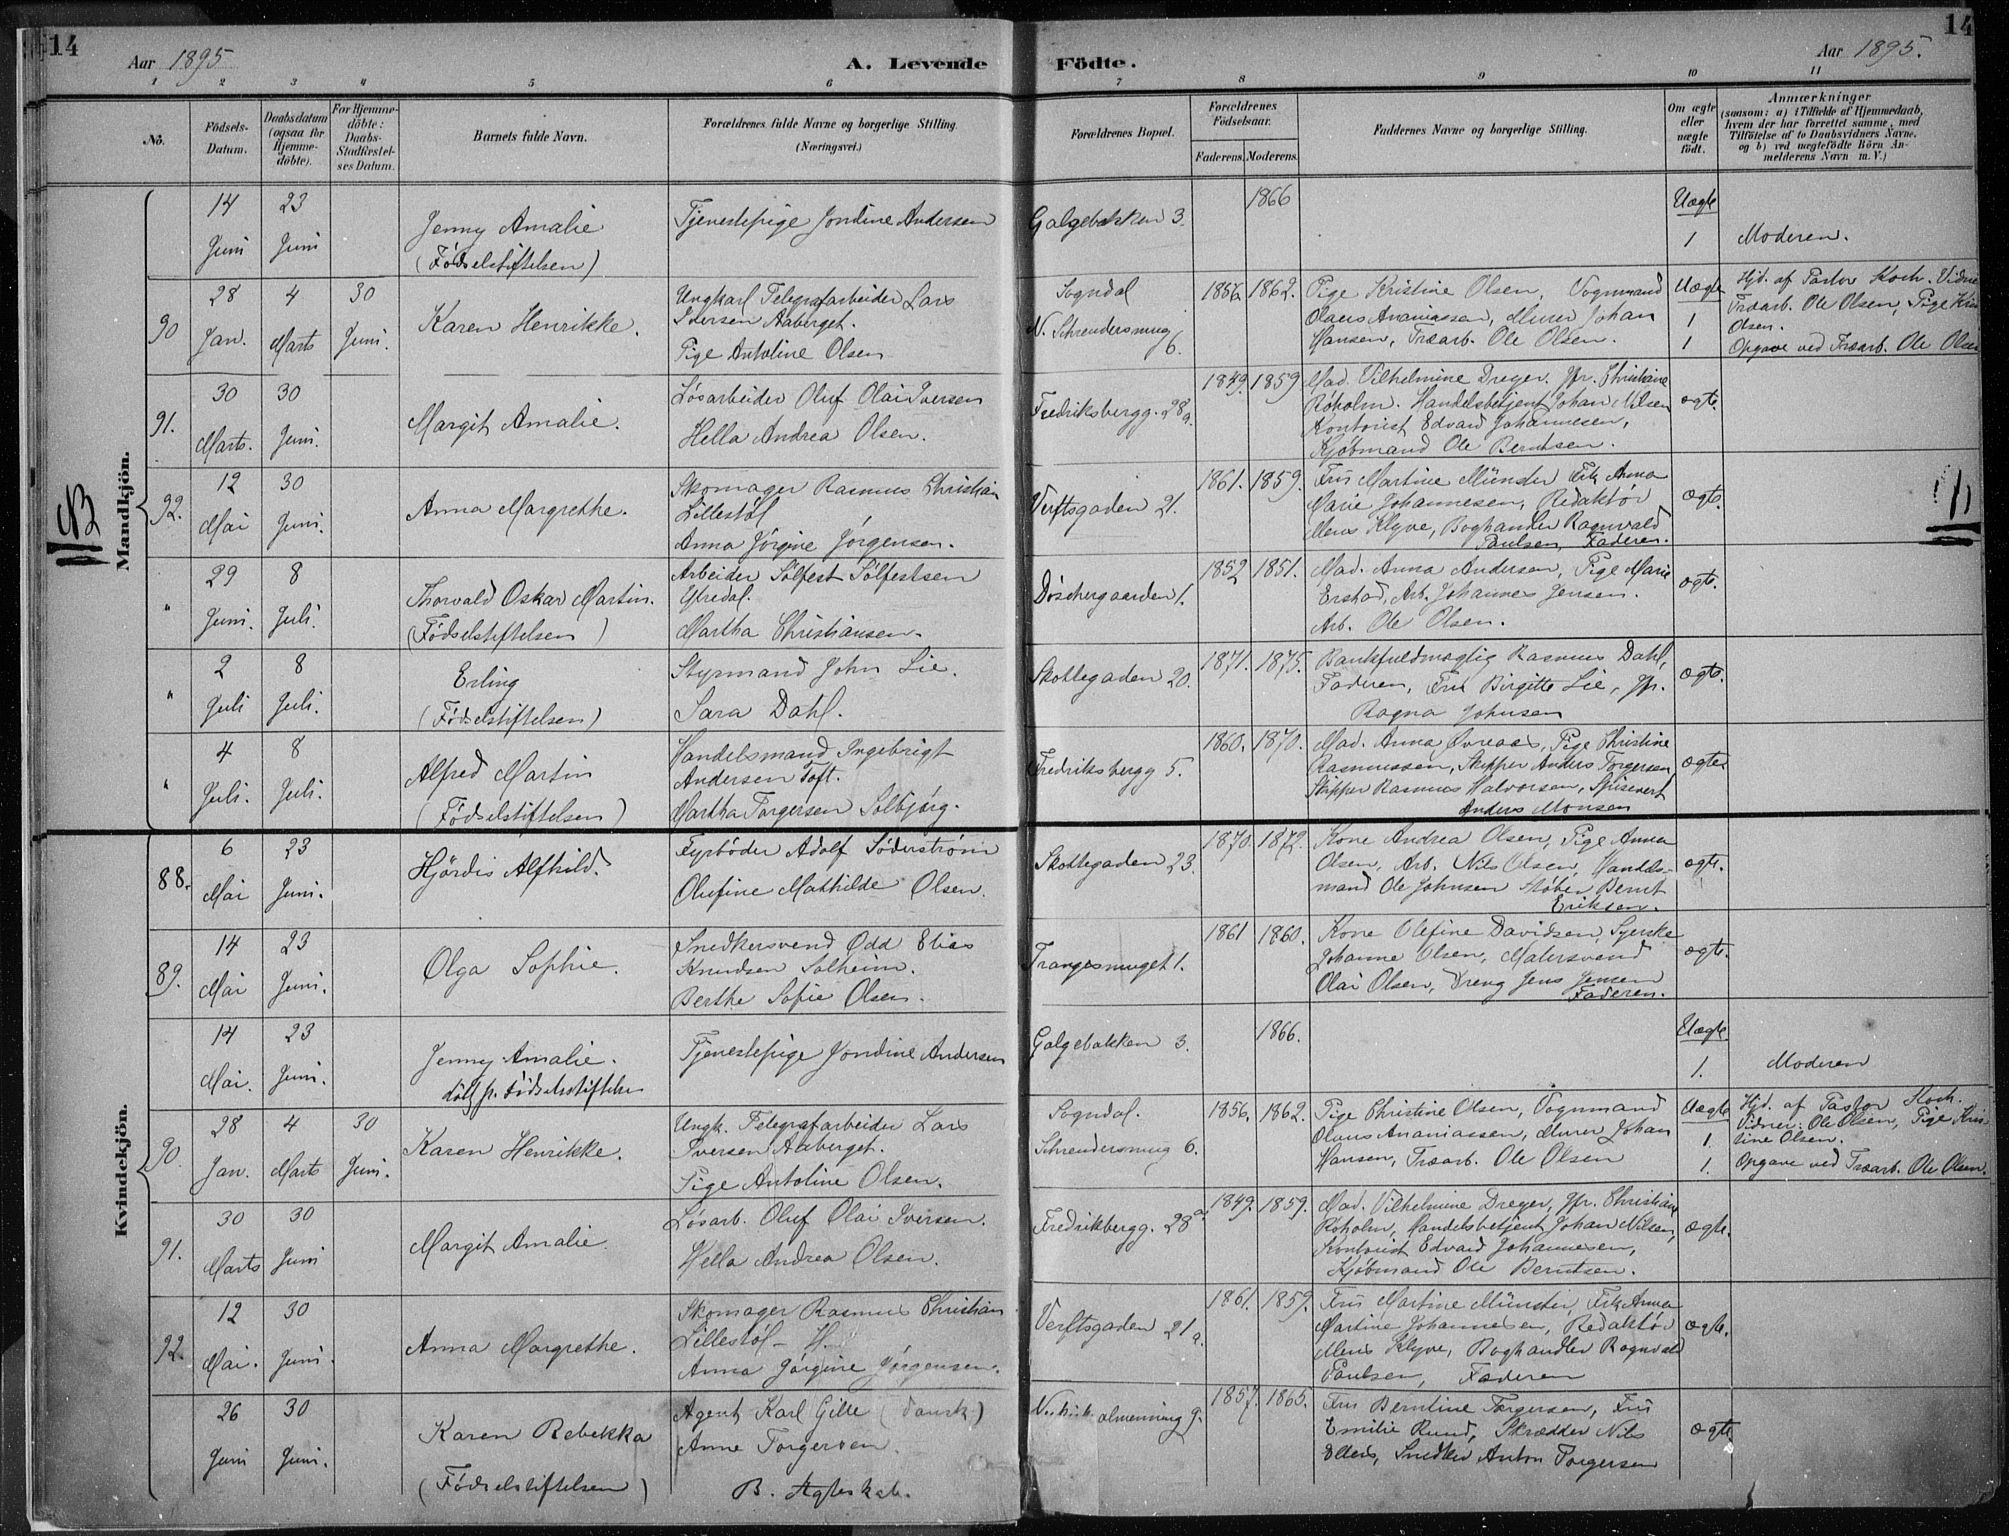 14
Aar 1895
A. Levende
Födte.
Aar 1895.
14
1 2 3 4 5 6 7 8 9 10 11
No.
Födsels-
Datum.
Daabsdatum
(ogsaa for
Hjemme-
döbte).
For Hjemme-
döbte:
Daabs-
Stadfæstel-
ses Datum.
Barnets fulde Navn.
Forældrenes fulde Navne og borgerlige Stilling.
(Næringsvei.)
Forældrenes Bopæl.
Forældrenes
Födselsaar.
Faderens. Moderens.
Faddernes Navne og borgerlige Stilling.
Om ægte
eller
uægte
födt.
Anmærkninger
(saasom: a) i Tilfælde af Hjemmedaab,
hvem der har forrettet samme, med
Tilföielse af to Daabsvidners Navne,
og b) ved uægtefödte Börn An-
melderens Navn m. V.)
Mandkjön.
14 Juni
23 Juni
Jenny Amalie
(Fødselstiftelsen)
Tjenestepige Jondine Andersen
Galgebakken 3.
1866
Uægte
1
Moderen.
90
28 Jan.
4 Marts
30 Juni.
Karen Henrikke.
Ungkarl Telegrafarbeider Lars
Iversen Aaberget.
Pige Antoline Olsen
Sogndal
N. Schrendersmug
6.
1856. 1862.
Pige Kristine Olsen, Vognmand
Olaus Ananiassen, Murer Johan
Hansen, Træarb. Ole Olsen.
Uægte
1
1
Hjd. af Pastor Koch. Vidne
Træarb. Ole Olsen, Pige Kris
Olsen.
Opgave ved Træarb. Ole Olsen
91.
30 Marts.
30 Juni.
Margit Amalie.
Løsarbeider Oluf Olai Iversen
Hella Andrea Olsen.
Fredriksbergg. 28a.
1849. 1859
Mad. Vilhelmine Dreyer. Jfr. Christiane
Roholm. Handelsbetjent Johan Nilsen
Kontorist Edvard Johannesen,
Kjøbmand Ole Berntsen.
ægte.
92.
12 Mai
30 Juni.
Anna Margrethe.
Skomager Rasmus Christian
Lillestøl
Anna Jørgine Jørgensen.
Verftsgaden 21.
1861. 1859.
Fru Martine Münster Frk. Anna
Marie Johannesen, Redaktør
Mens Klyve, Boghandler Ragnvald
Paulsen, Faderen.
ægte.
"
29 Juni.
8 Juli.
Thorvald Oskar Martin.
(Fødselstiftelsen)
Arbeider Sølfest Sølfestsen
Ytredal.
Martha Christiansen.
Døschergaarden 1.
1852 1851.
Mad. Anna Andersen, Pige Marie
Erstad, Arb. Johannes Jensen.
Arb. Ole Olsen.
ægte.
"
2 Juli
8 Juli.
Erling
(Fødselstiftelsen)
Styrmand John Lie.
Sara Dahl.
Skottegaden 20.
1871. 1875.
Bankfuldmægtig Rasmus Dahl,
Faderen, Fru Birgitte Lie, Jfr.
Ragna Johnsen
ægte.
"
4 Juli.
8 Juli.
Alfred Martin
(Fødselstiftelsen)
Handelsmand Ingebrigt
Andersen Toft.
Martha Torgersen Solbjørg.
Fredriksbergg 5.
1860. 1870.
Mad. Anna Øvreaas, Pige Christine
Rasmussen, Skipper Anders Torgersen
Skipper Rasmus Halvorsen, Spisevert
Anders Monsen
ægte
Kvindekjön.
88.
6 Mai
23 Juni.
Hjördis Alfhild.
Fyrbøder Adolf Söderström
Olufine Mathilde Olsen.
Skottegaden 23.
1870. 1872.
Kone Andrea Olsen, Pige Anna
Olsen, Arb. Nils Olsen, Handels-
mand Ole Johnsen Støber Bernt
Eriksen.
ægte.
89.
14 Mai
23 Juni.
Olga Sophie.
Snedkersvend Odd Elias
Knudsen Solheim.
Berthe Sofie Olsen.
Trangesmuget 1.
1861 1860.
Kone Olefine Davidsen, Syerske
Johanne Olsen, Malersvend
Olai Olsen, Dreng Jens Jensen
Faderen.
ægte.
14 Mai.
23 Juni.
Jenny Amalie.
døbt pr. Fødselsstiftelse
Tjenestepige Jondine Andersen
Galgebakken 3.
1866.
Uægte
1.
Moderen
90.
28 Jan.
4 Marts
30 Juni.
Karen Henrikke.
Ungk. Telegrafarbeider Lars
Iversen Aaberget.
Pige Antoline Olsen.
Sogndal.
Schrendersmug 6.
1856. 1862.
Pige Christine Olsen, Vognmand
Olaus Ananiassen, Murer Johan
Hansen, Træarb. Ole Olsen
Uægte
1.
1.
Hjd. af Pastor Koch.
Vidner: Ole Olsen, Pige Kris
tine Olsen.
Opgave ved Træarb. Ole Olsen.
91.
30 Marts
30 Juni
Margit Amalie.
Løsarb. Oluf Olai Iversen.
Hella Andrea Olsen.
Fredrikbergg. 28a.
1849. 1859.
Mad. Vilhelmine Dreyer, Jfr. Christiane
Roholm, Handelsbetjent Johan Nilsen,
Kontorist Edvard Johannesen,
Kjøbmand Ole Berntsen.
ægte.
92.
12 Mai.
30 Juni.
Anna Margrethe.
Skomager Rasmus Christian
Lillestøl - H.
Anna Jørgine Jørgensen.
Verftsgaden 21a.
1861. 1859.
Fru Martine Münster, Frk. Anna
Martine Johannesen, Redaktør
Mens Klyve, Boghandler Ragnvald
Paulsen, Faderen
ægte.
26 Juni
30 Juni.
Karen Rebekka
(Fødselstiftelsen)
Agent Karl Gille (dansk)
Anne Torgersen.
B. Ægteskab.
almenning 9.
1857. 1865.
Fru Berntine Torgersen, Fru
Emilie Rund, Skrædder Nils
Ellers, Snedker Anton Torgersen
ægte